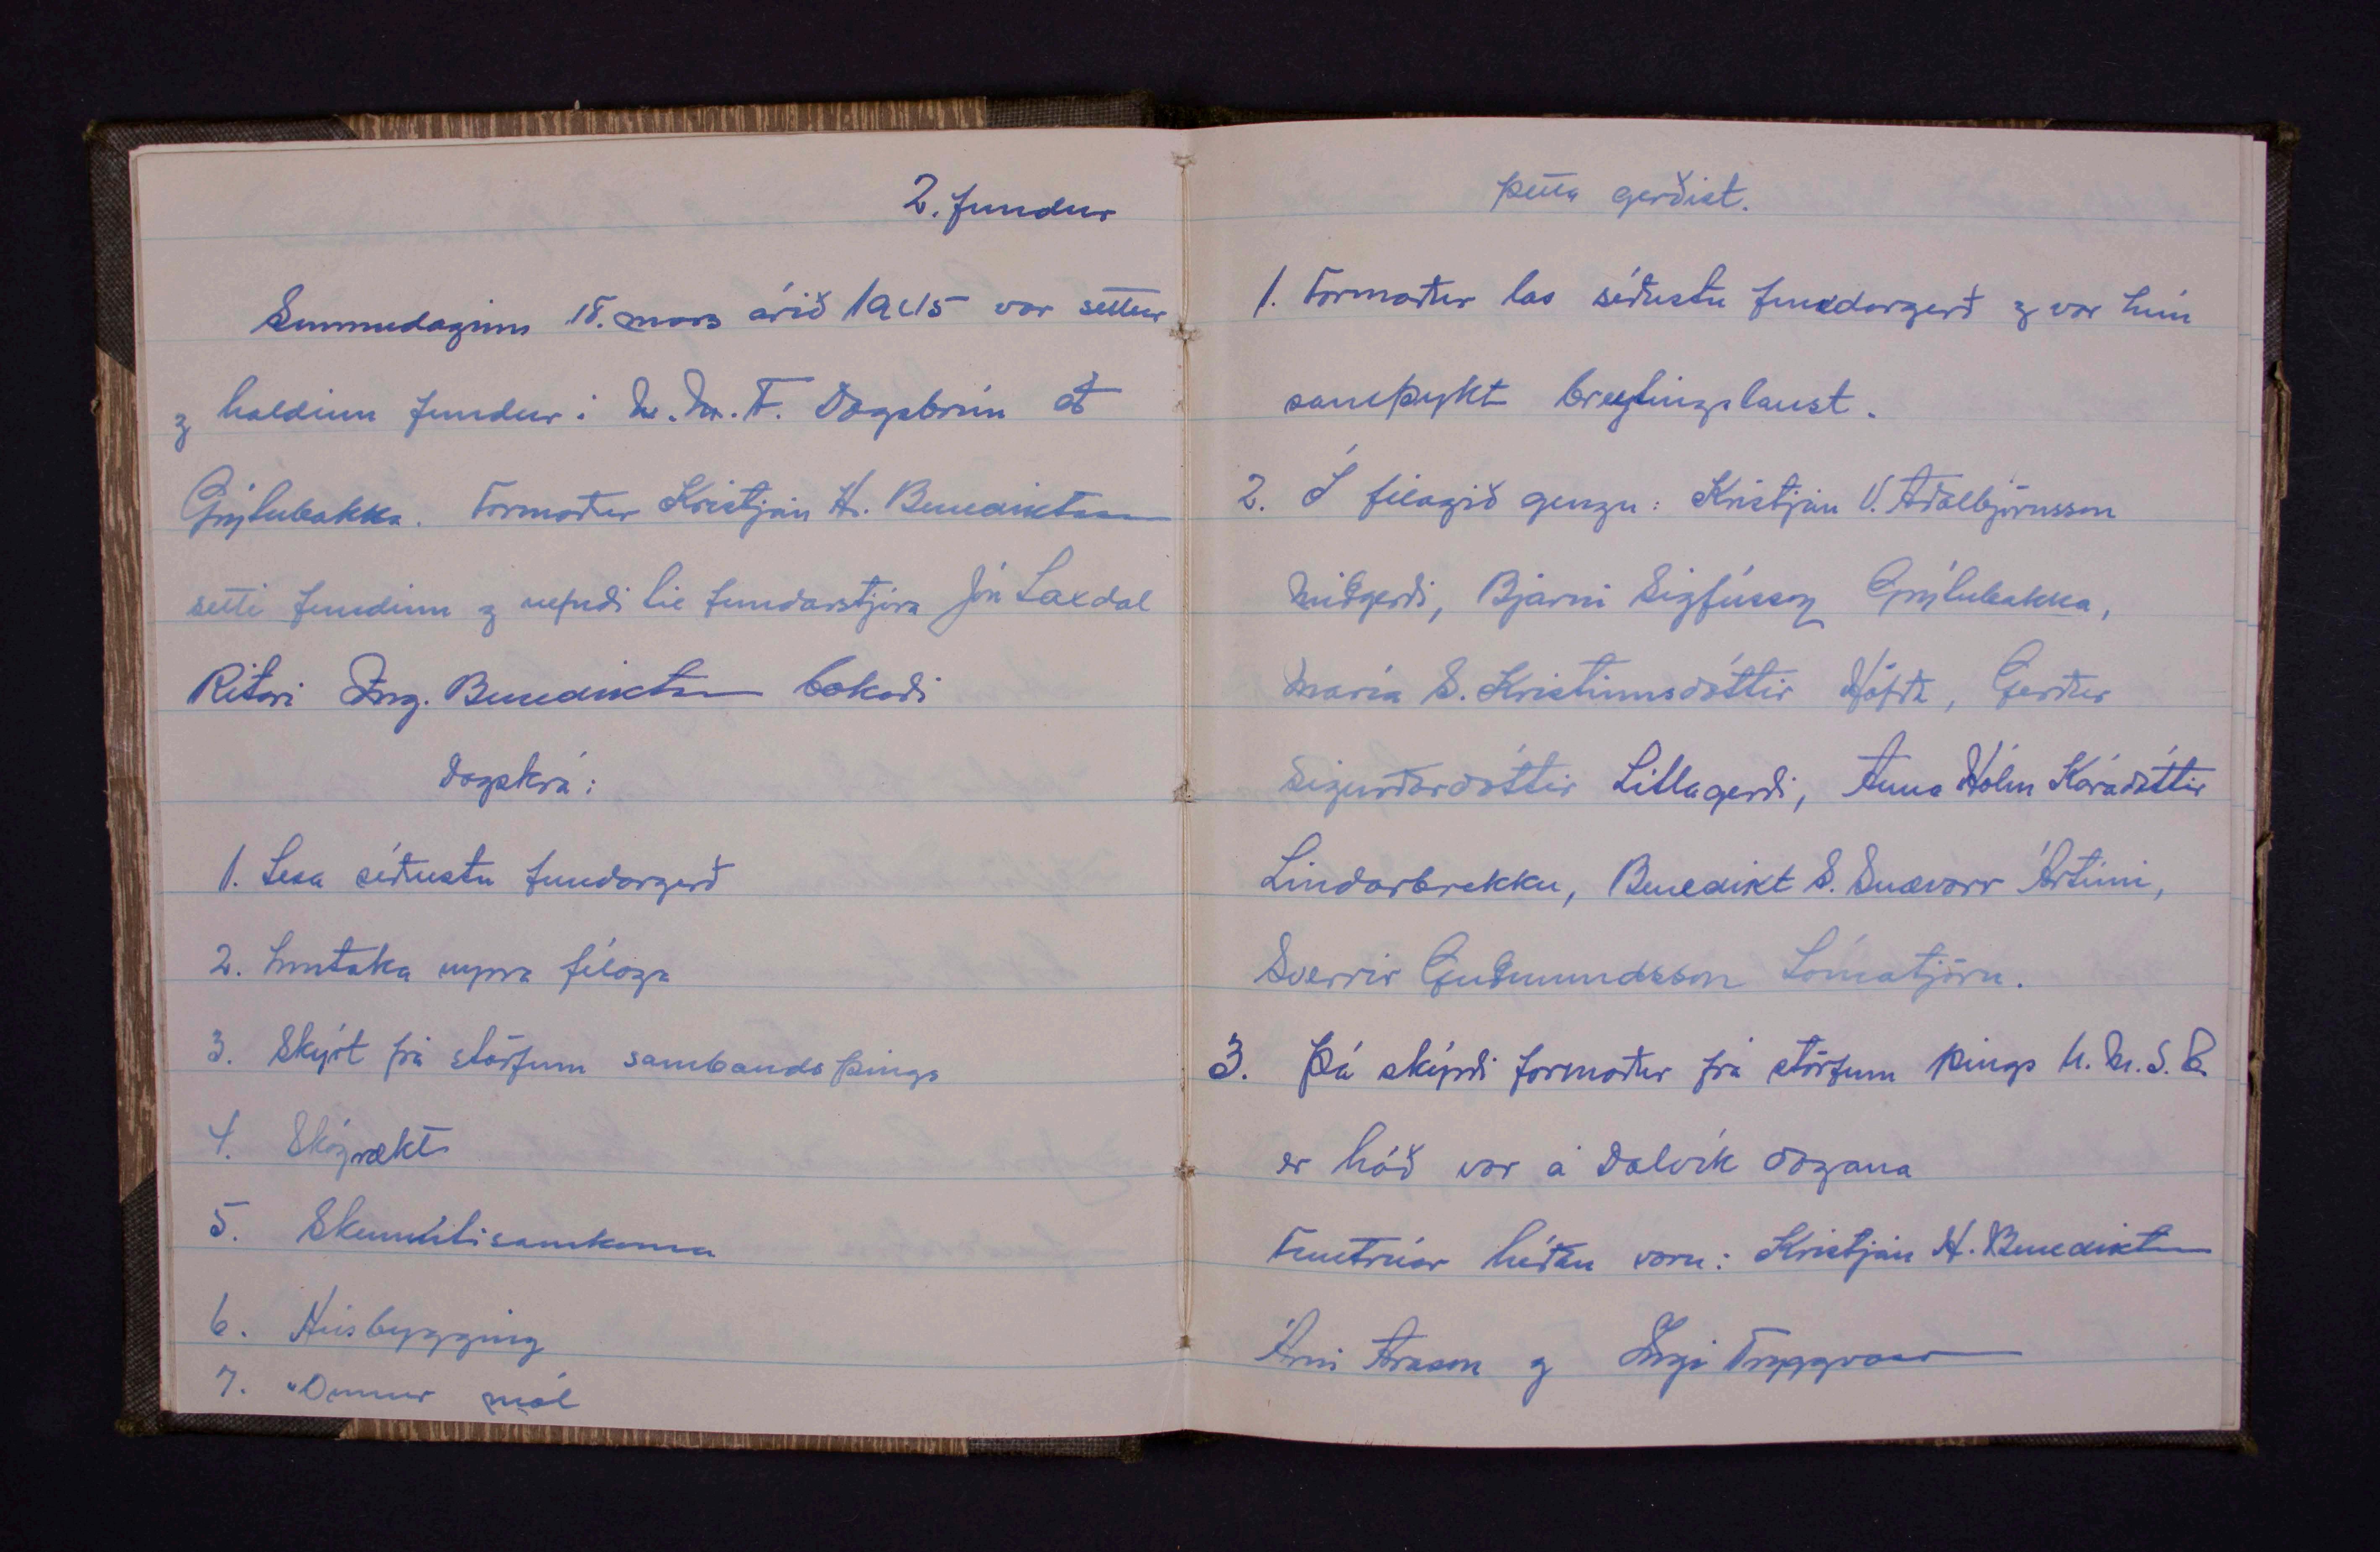 2. fundur
Sunnudaginn 18. mars árið 1945 var settur
og haldinn fundur í U.M.F. Dagsbrún að
Grýtubakka. Formaður Kristján H. Benediktsson
setti fundinn og nefndi til fundarstjóra Jón Laxdal
Ritari Ing. Benediktsson bókaði
Dagskrá:
1. Lesa síðustu fundargerð
2. Inntaka nýrra félaga
3. Skýrt frá störfum sambandsþings
4. Skógrækt
5. Skemmtisamkoma
6. Húsbygging
7. Önnur mál
Þetta gerðist.
1. Formaður las síðustu fundargerð og var hún
samþykt breytingalaust.
2. Í félagið gengu: Kristján V. Aðalbjörnsson
Miðgerði, Bjarni Sigfússon Grýtubakka,
María S. Kristinnsdóttir Höfða, Gerður
Sigurðardóttir Litlagerði, Anna Hólm Káradóttir
Lindarbrekku, Benedikt S. Snævarr Ártúni,
Sverrir Guðmundsson Lómatjörn.
3. Þá skýrði formaður frá störfum þings U.M.S.E.
er háð var á Dalvík dagana
Fulltrúar héðan voru: Kristján H. Benediktsson
Árni Arason og Ingi Tryggvason